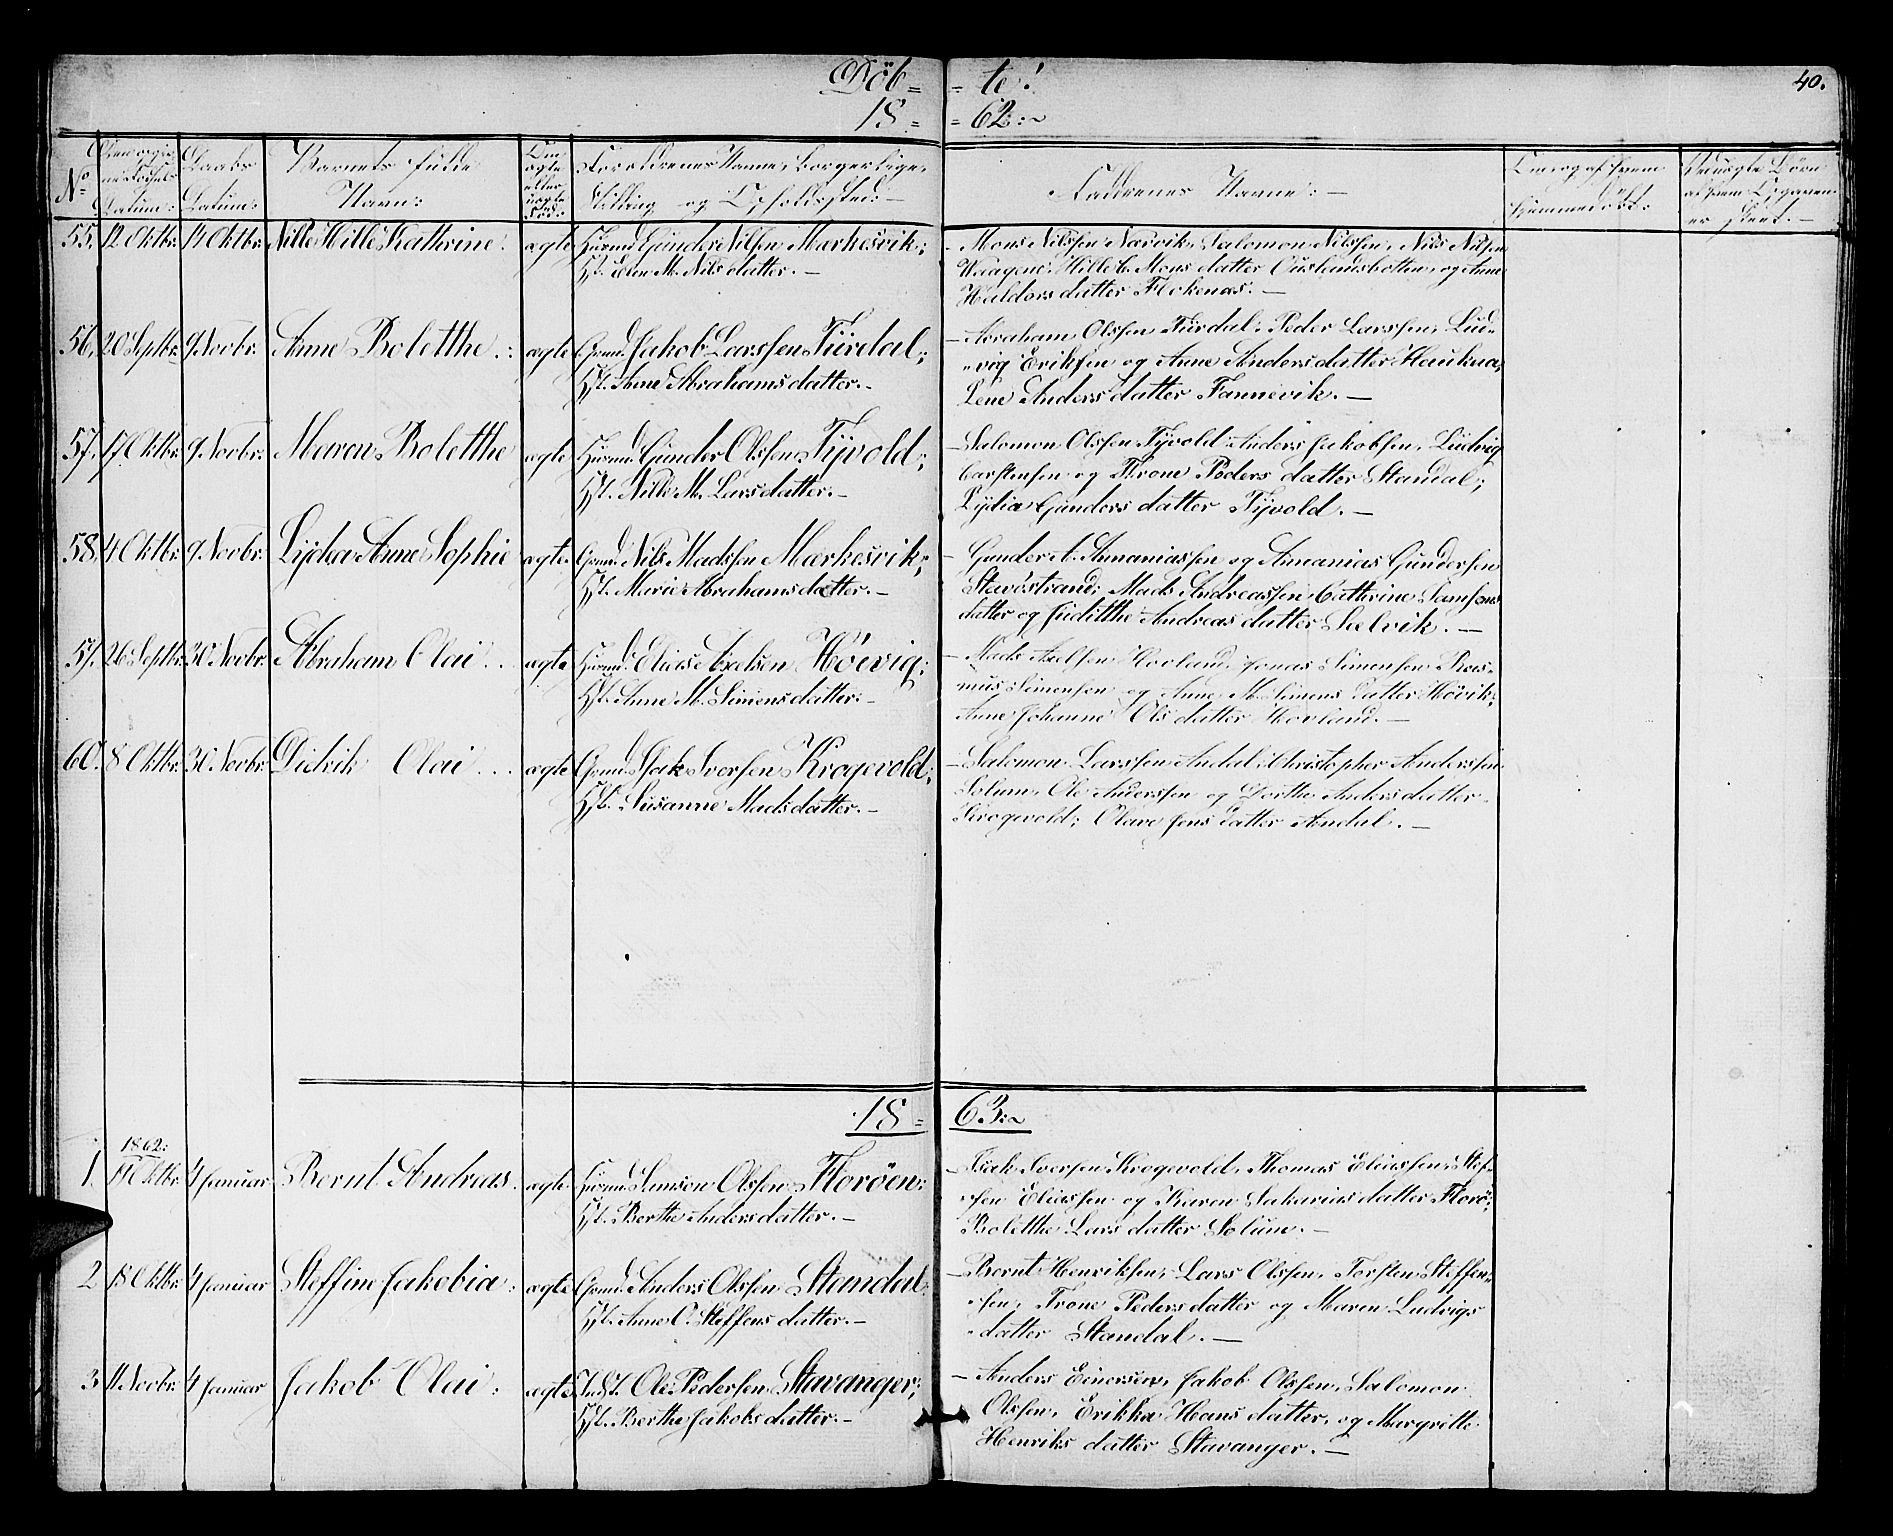 Döb= =te!
40.
18= =62:~
No
Datum:
Daabs Datum:
Barnets fulde Navn:
Om ægte eller uægte Fød:
Forældrenes Navne, borgerlige Stilling og Opholdssted:—
Faddrenes Navne:—
Om og af hvem hjemmedöbt:
55. 12 Oktbr. 19 Oktbr. Nille Hille Kathrine: ægte Huusmd Gunder Nilsen Markesvik;
Hst. Elen M. Nilsdatter.—
Mons Nilssen Narvik, Salomon Nilssen, Nils Nilsen
Waagene, Hille b. Mons datter Ouslandsbotten, og Anne
Haldors datter Flokenæs.—
56. 20 Septbr. 9 Novbr. Anne Boletthe.: ægte Grmd. Jakob Larssen Furdal;
Hst. Anne Abrahamsdatter.—
Abraham Olssen Furdal, Peder Larssen, Lud=
=vig Eriksen og Anne Anders datter Haukna,
Lene Anders datter Fannevik.—
57. 17 Oktbr. 9 Novbr. Maren Boletthe ægte Huusmd Gunder Olssen Tÿvold;
Hst. Nille M. Larsdatter.—
Salomon Olssen Tÿvold, Anders Jakobsen, Ludvig
Carstensen og Throne Peders datter Standal;
Lydia Gunders datter Tÿvold.—
58. 4 Oktbr. 9 Novbr. Lÿdea Anne Sophie ægte. Grmd. Nils Madssen Markesvik;
Hst. Marie Abrahamsdatter.—
Gunder A. Annaniassen og Annanias Gundersen
Stavöstrand; Mads Andreassen, Cathrine Samsons
datter og Juditthe Andreas datter Sælvik.—
59. 26 Septbr. 30 Novbr. Abraham Olai.. ægte Huusmd. Elias Axelsen Höevig;
Hst. Anne M. Simensdatter.—
Mads Axelsen Hovland, Jonas Simensen, Ras=
mus Simensen og Anne M. Simens datter Hövik;
Anne Johanne Ols datter Hovland.—
60. 8 Oktbr. 30 Novbr. Didrik Olai... ægte Grmd. Isak Iversen Krogevold;
Hst. Susanne Madsdatter.—
Salomon Larssen Andal, Christopher Anderssen
Solum, Ole Anderssen og Dorthe Anders datter
Krogevold; Olave Jens datter Andal.—
18= 63:~
1862:
1. 19 Oktbr. 4 Januar Bernt Andreas. ægte. Huusmd Samson Olssen Floröen;
Hst. Berthe Andersdatter.—
Isak Iversen Krogevold, Thomas Eliassen, Stef=
=fen Eliassen og Karen Sakarias datter Florö;
Boletthe Lars datter Solum.—
2 18 Oktbr. 4 Januar Steffine Jakobia: ægte Grmd. Anders Olssen Standal;
Hst. Anne O. Steffens datter.—
Bernt Henriksen, Lars Olssen, Torsten Steffen=
=sen, Trone Peders datter og Maren Ludvigs
=datter Standal.—
3 11 Novbr. 4 Januar Jakob Olai: ægte Indst. Ole Pedersen Stavanger;
Hst. Berthe Jakobsdatter.—
Anders Einersen, Jakob Olssen, Salomon
Olssen, Erikka Hans datter, og Margrethe
Henriks datter Stavanger.—